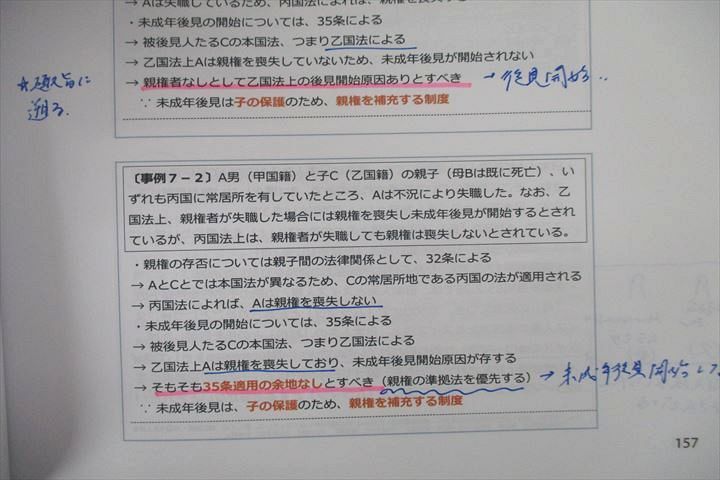 → Aは失職しているため、丙国法によれば、親権を喪失する
・未成年後見の開始については、35条による
→ 被後見人たるCの本国法、つまり乙国法による
→ 乙国法上Aは親権を喪失していないため、未成年後見が開始されない
→ 親権者なしとして乙国法上の後見開始原因ありとすべき → 後見開始..
∵ 未成年後見は子の保護のため、親権を補充する制度
☆趣旨に
遡る.
〔事例7-2〕A男（甲国籍）と子C（乙国籍）の親子（母Bは既に死亡）、い
ずれも丙国に常居所を有していたところ、Aは不況により失職した。なお、乙
国法上、親権者が失職した場合には親権を喪失し未成年後見が開始するとされ
ているが、丙国法上は、親権者が失職しても親権は喪失しないとされている。
・親権の存否については親子間の法律関係として、32条による
→ AとCとでは本国法が異なるため、Cの常居所地である丙国の法が適用される
→ 丙国法によれば、Aは親権を喪失しない
・未成年後見の開始については、35条による
→ 被後見人たるCの本国法、つまり乙国法による
→ 乙国法上Aは親権を喪失しており、未成年後見開始原因が存する
→ そもそも35条適用の余地なしとすべき（親権の準拠法を優先する） → 未成年後見開始し
∵ 未成年後見は、子の保護のため、親権を補充する制度
157